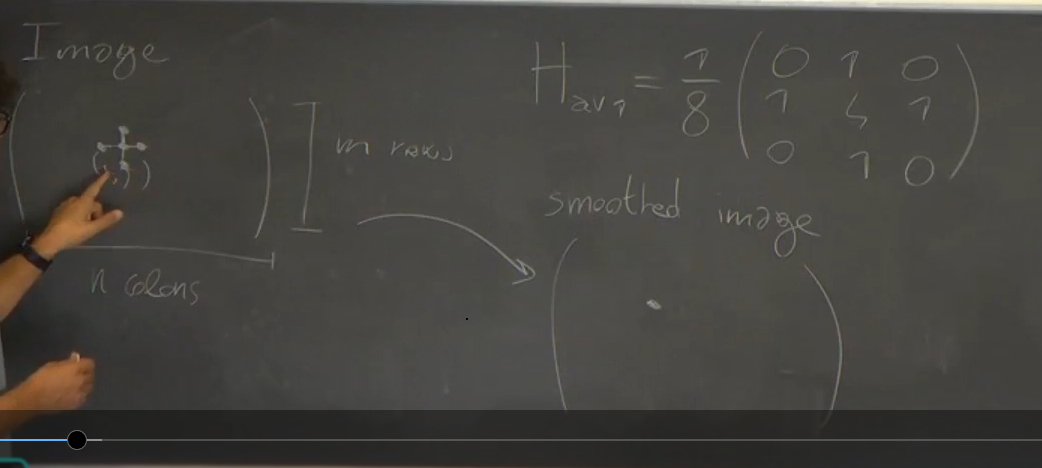 Image
(i,j)
m rows
n colons
H av1 = 1/8 (0 1 0
1 4 1
0 1 0)
smoothed image